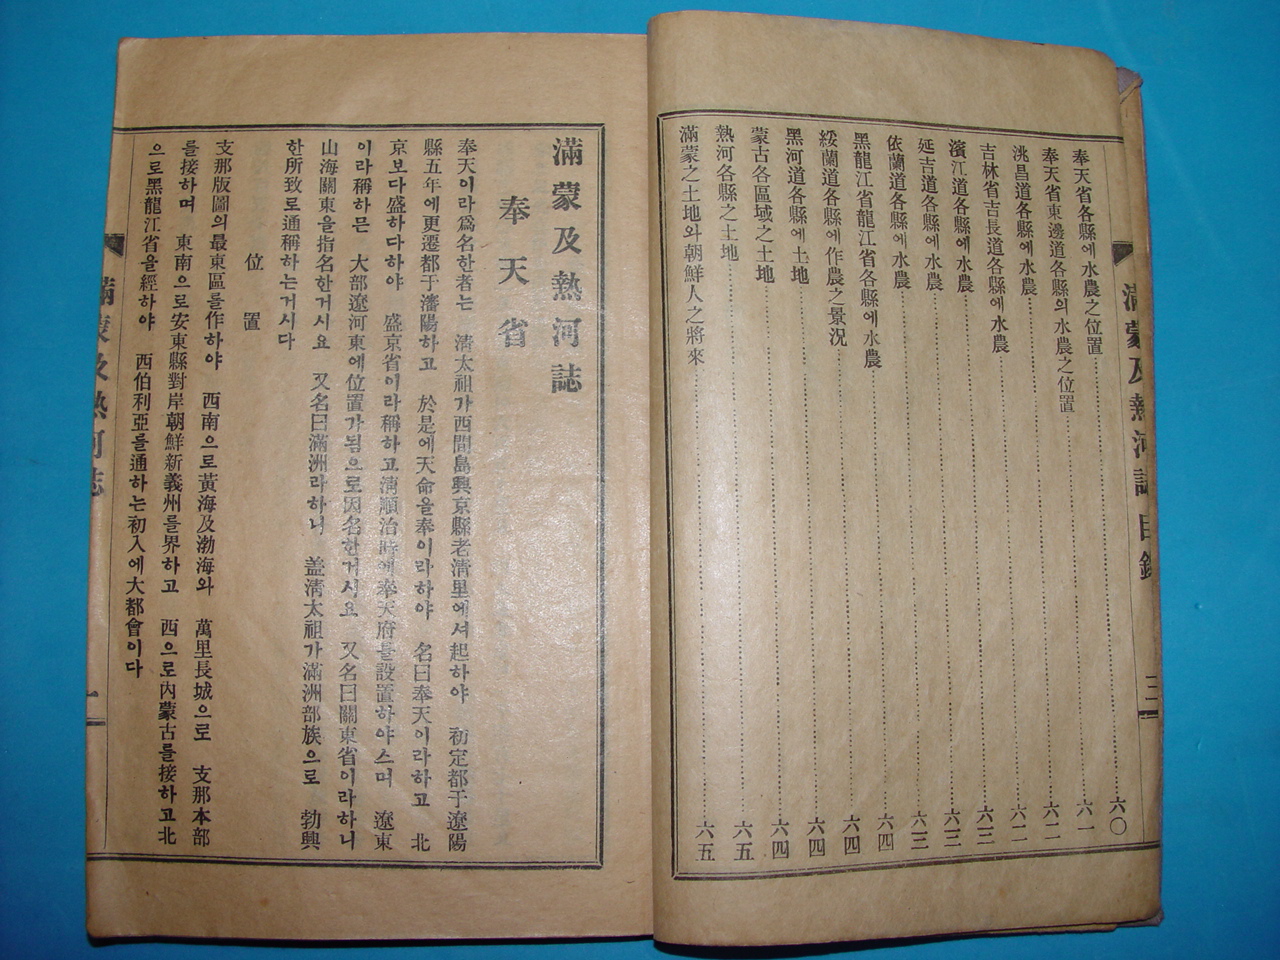 滿蒙及熱河誌 目錄
三
奉天省各縣에水農之位置 六〇
奉天省東邊道各縣의水農之位置 六一
洮昌道各縣에水農 六二
吉林省吉長道各縣에水農 六二
濱江道各縣에水農 六三
延吉道各縣에水農 六三
依蘭道各縣에水農 六三
黑龍江省龍江省各縣에水農 六四
綏蘭道各縣에作農之景況 六四
黑河道各縣에土地 六四
蒙古各區域之土地 六四
熱河各縣之土地 六五
滿蒙之土地와朝鮮人之將來 六五
滿蒙及熱河誌
奉天省
奉天이라爲名한者는 淸太祖가西間島興京縣老清里에셔起하야 初定都于遼陽
縣五年에更遷都于瀋陽하고 於是에天命을奉이라하야 名曰奉天이라하고 北
京보다盛하다하야 盛京省이라稱하고淸順治時에奉天府를設置하야스며 遼東
이라稱하믄 大部遼河東에位置가됨으로因名한거시요 又名曰關東省이라하니
山海關東을指名한거시요 又名曰滿洲라하니 盖淸太祖가滿洲部族으로 勃興
한所致로通稱하는거시다
位置
支那版圖의最東區를作하야 西南으로黃海及渤海와 萬里長城으로 支那本部
를接하며 東南으로安東縣對岸朝鮮新義州를界하고 西으로內蒙古를接하고北
으로黑龍江省을經하야 西伯利亞를通하는初入에大都會이다
滿蒙及熱河誌
一